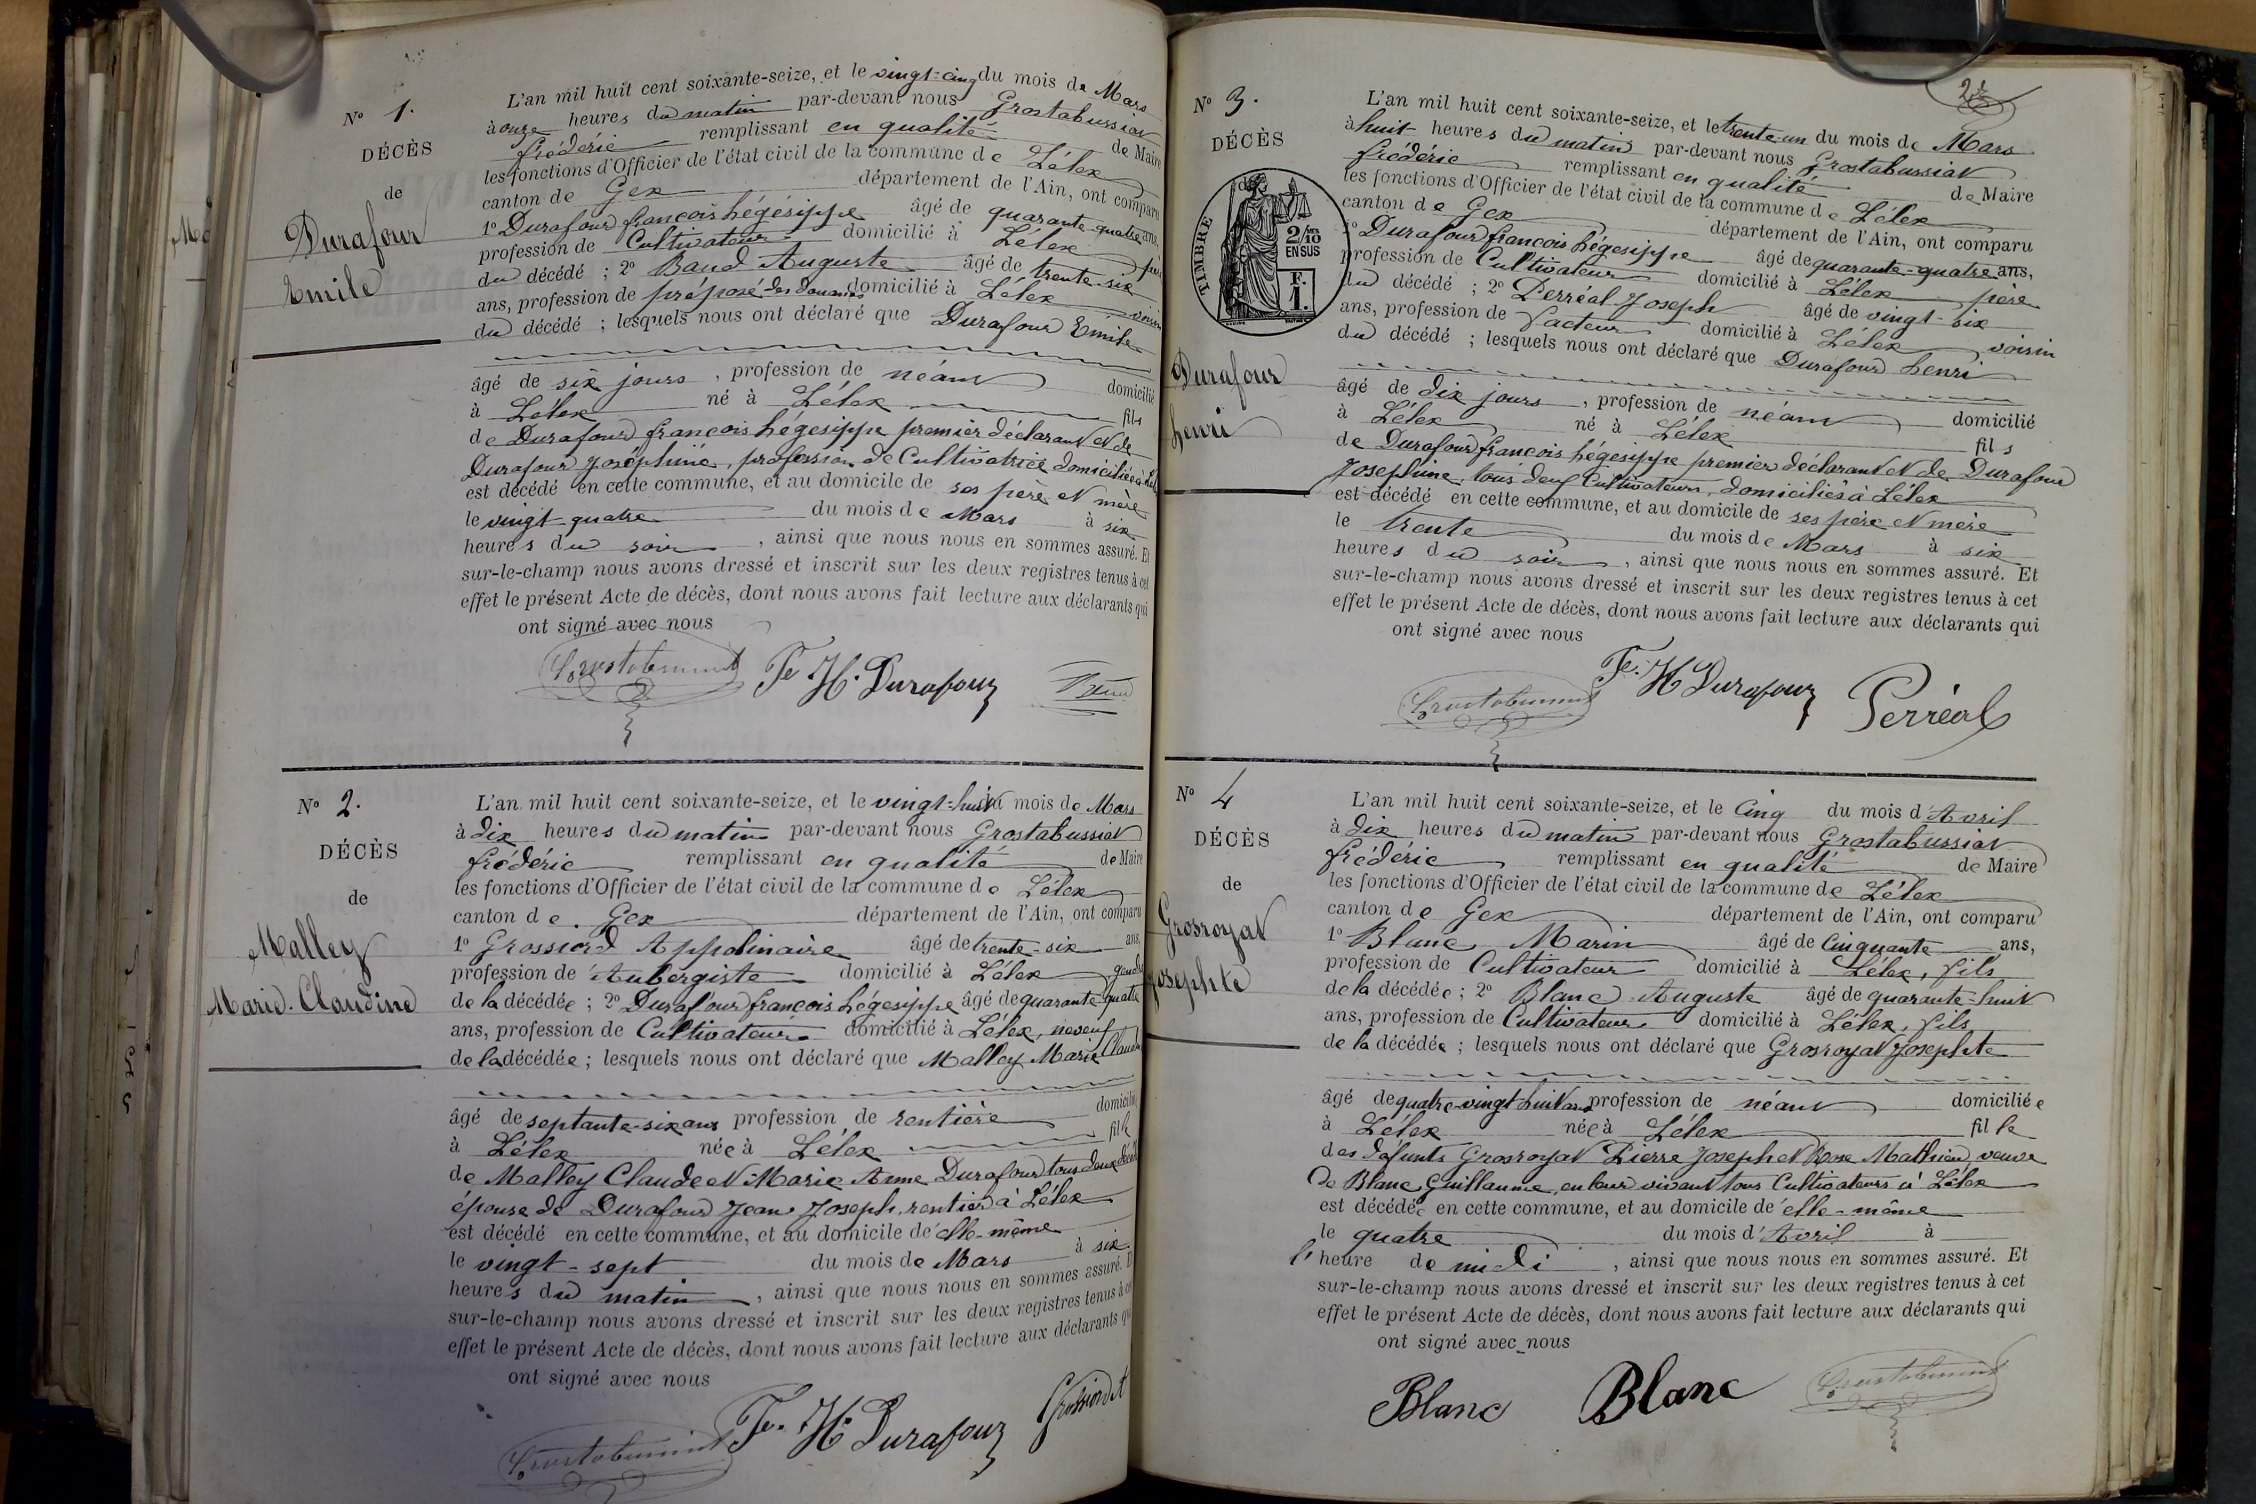 Nº 1.
DÉCÈS
de
Durafour
Emile
L'an mil huit cent soixante-seize, et le vingt-cinq du mois de Mars
à onze heures du matin par-devant nous Grostabussiat
frédéric remplissant en qualité de Maire
les fonctions d'Officier de l'état civil de la commune de Lélex
canton de Gex département de l'Ain, ont comparu
1º Durafour françois hégésippe âgé de quarante-quatre ans,
profession de Cultivateur domicilié à Lélex père
du décédé ; 2º Baud Auguste âgé de trente-six
ans, profession de préposé des Douanes domicilié à Lélex voisin
du décédé ; lesquels nous ont déclaré que Durafour Emile
âgé de six jours, profession de néant domicilié
à Lélex né à Lélex fils
de Durafour françois hégésippe premier déclarant et de
Durafour Joséphine, profession de Cultivatrice domiciliée à
est décédé en cette commune, et au domicile de ses père et mère
le vingt-quatre du mois de Mars à six
heures du soir, ainsi que nous nous en sommes assuré. Et
sur-le-champ nous avons dressé et inscrit sur les deux registres tenus à cet
effet le présent Acte de décès, dont nous avons fait lecture aux déclarants qui
ont signé avec nous
Grostabussiat Fs H. Durafour
Nº 2.
DÉCÈS
de
Malley
Marie-Claudine
L'an mil huit cent soixante-seize, et le vingt-huit du mois de Mars
à dix heures du matin par-devant nous Grostabussiat
frédéric remplissant en qualité de Maire
les fonctions d'Officier de l'état civil de la commune de Lélex
canton de Gex département de l'Ain, ont comparu
1º Grossiord Appolinaire âgé de trente-six ans,
profession de Aubergiste domicilié à Lélex gendre
de la décédée ; 2º Durafour françois hégésippe âgé de quarante-quatre
ans, profession de Cultivateur domicilié à Lélex, neveu
de la décédée ; lesquels nous ont déclaré que Malley Marie Claudine
âgé de septante-six ans profession de rentière domicilié
à Lélex née à Lélex fille
de Malley Claude et Marie Anne Durafour tous deux
épouse de Durafour Jean Joseph, rentier à Lélex
est décédé en cette commune, et au domicile de elle-même
le vingt-sept du mois de Mars à six
heures du matin, ainsi que nous nous en sommes assuré. Et
sur-le-champ nous avons dressé et inscrit sur les deux registres tenus à cet
effet le présent Acte de décès, dont nous avons fait lecture aux déclarants qui
ont signé avec nous
Grostabussiat Fs. H. Durafour Grossiord
Nº 3.
DÉCÈS
de
TIMBRE
2/10
EN SUS
F.
1.
Durafour
henri
L'an mil huit cent soixante-seize, et le trente-un du mois de Mars
à huit heures du matin par-devant nous Grostabussiat
frédéric remplissant en qualité de Maire
les fonctions d'Officier de l'état civil de la commune de Lélex
canton de Gex département de l'Ain, ont comparu
1º Durafour françois hégésippe âgé de quarante-quatre ans,
profession de Cultivateur domicilié à Lélex père
du décédé ; 2º Perréal Joseph âgé de vingt-six
ans, profession de facteur domicilié à Lélex voisin
du décédé ; lesquels nous ont déclaré que Durafour henri
âgé de dix jours, profession de néant domicilié
à Lélex né à Lélex fils
de Durafour françois hégésippe premier déclarant et de Durafour
Joséphine, tous deux Cultivateurs, domiciliés à Lélex
est décédé en cette commune, et au domicile de ses père et mère
le trente du mois de Mars à six
heures du soir, ainsi que nous nous en sommes assuré. Et
sur-le-champ nous avons dressé et inscrit sur les deux registres tenus à cet
effet le présent Acte de décès, dont nous avons fait lecture aux déclarants qui
ont signé avec nous
Grostabussiat Fs. H Durafour Perréal
Nº 4
DÉCÈS
de
Grosroyat
Josephte
L'an mil huit cent soixante-seize, et le Cinq du mois d'Avril
à dix heures du matin par-devant nous Grostabussiat
frédéric remplissant en qualité de Maire
les fonctions d'Officier de l'état civil de la commune de Lélex
canton de Gex département de l'Ain, ont comparu
1º Blanc Marin âgé de Cinquante ans,
profession de Cultivateur domicilié à Lélex, fils
de la décédée ; 2º Blanc Auguste âgé de quarante-huit
ans, profession de Cultivateur domicilié à Lélex, fils
de la décédée ; lesquels nous ont déclaré que Grosroyat Josephte
âgé de quatre-vingt huit ans profession de néant domiciliée
à Lélex née à Lélex fille
des défunts Grosroyat Pierre Joseph et Rose Mathieu, veuve
de Blanc Guillaume, en leur vivant tous Cultivateurs à Lélex
est décédée en cette commune, et au domicile de elle-même
le quatre du mois d'Avril à
l'heure de midi, ainsi que nous nous en sommes assuré. Et
sur-le-champ nous avons dressé et inscrit sur les deux registres tenus à cet
effet le présent Acte de décès, dont nous avons fait lecture aux déclarants qui
ont signé avec nous
Blanc Blanc Grostabussiat